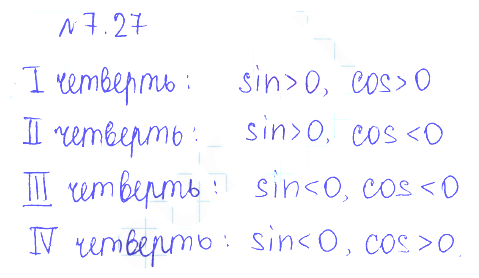 №7.27
I четверть: sin>0, cos>0
II четверть: sin>0, cos<0
III четверть: sin<0, cos<0
IV четверть: sin<0, cos>0.